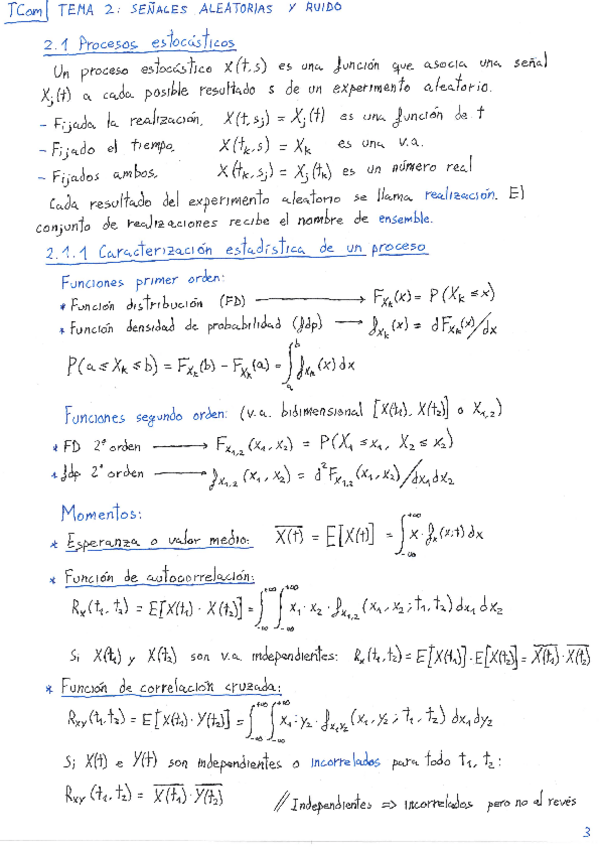 TCom TEMA 2: SEÑALES ALEATORIAS Y RUIDO
2.1 Procesos estocásticos
Un proceso estocástico X(t,s) es una función que asocia una señal
Xj(t) a cada posible resultado s de un experimento aleatorio.
- Fijada la realización, X(t,sj) = Xj(t) es una función de t
- Fijado el tiempo, X(tk,s) = Xk es una v.a.
- Fijados ambos, X(tk,sj) = Xj(tk) es un número real
Cada resultado del experimento aleatorio se llama realización. El
conjunto de realizaciones recibe el nombre de ensemble.
2.1.1 Caracterización estadística de un proceso
Funciones primer orden:
* Función distribución (FD) ⟶ F_Xk(x) = P(Xk ≤ x)
* Función densidad de probabilidad (fdp) ⟶ f_Xk(x) = dF_Xk(x)/dx
P(a ≤ Xk ≤ b) = F_Xk(b) - F_Xk(a) = ∫_a^b f_Xk(x) dx
Funciones segundo orden: (v.a. bidimensional [X(t1), X(t2)] o X1,2)
* FD 2º orden ⟶ F_X1,2(x1, x2) = P(X1 ≤ x1, X2 ≤ x2)
* fdp 2º orden ⟶ f_X1,2(x1, x2) = d²F_X1,2(x1, x2)/dx1 dx2
Momentos:
* Esperanza o valor medio: X̅(̅t̅)̅ = E[X(t)] = ∫_-∞^+∞ x · fx(x;t) dx
* Función de autocorrelación:
Rx(t1, t2) = E[X(t1) · X(t2)] = ∫_-∞^+∞ ∫_-∞^+∞ x1 · x2 · f_X1,2(x1, x2; t1, t2) dx1 dx2
Si X(t1) y X(t2) son v.a. independientes: Rx(t1, t2) = E[X(t1)] · E[X(t2)] = X̅(̅t̅1̅)̅ · X̅(̅t̅2̅)̅
* Función de correlación cruzada:
Rxy(t1, t2) = E[X(t1) · Y(t2)] = ∫_-∞^+∞ ∫_-∞^+∞ x1 · y2 · f_X1Y2(x1, y2; t1, t2) dx1 dy2
Si X(t) e Y(t) son independientes o incorrelados para todo t1, t2:
Rxy(t1, t2) = X̅(̅t̅1̅)̅ · Y̅(̅t̅2̅)̅ // Independientes => incorrelados pero no al revés
3